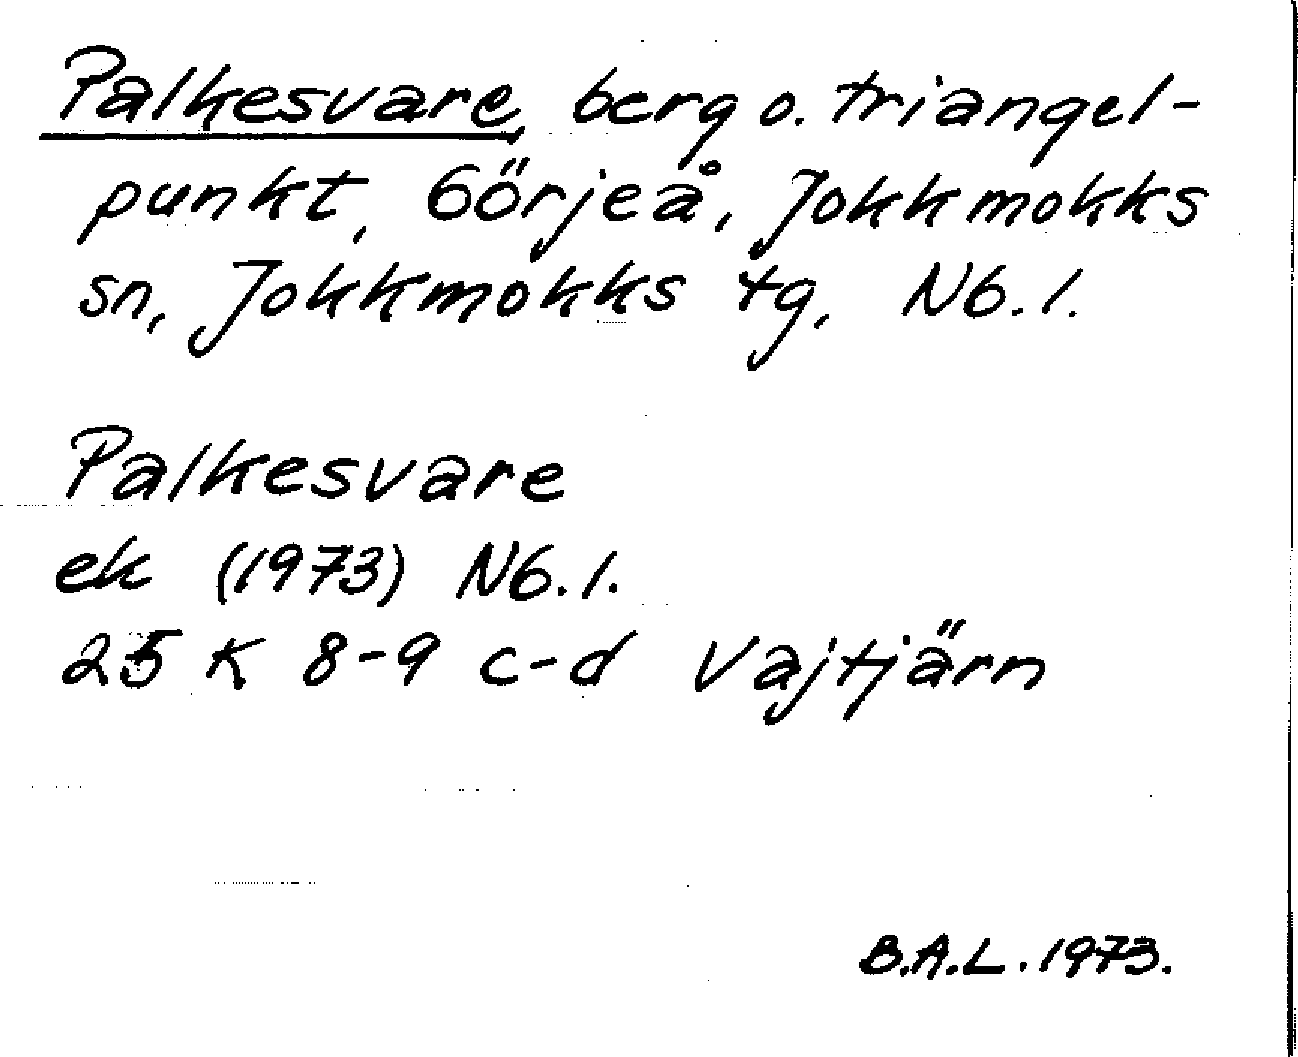 Palkesvare, berg o. triangel-
punkt, Görjeå, Jokkmokks
sn, Jokkmokks tg, Nb. l.
Palkesvare
ek (1973) Nb. l.
25 K 8-9 c-d Vajtjärn
B.A.L. 1973.